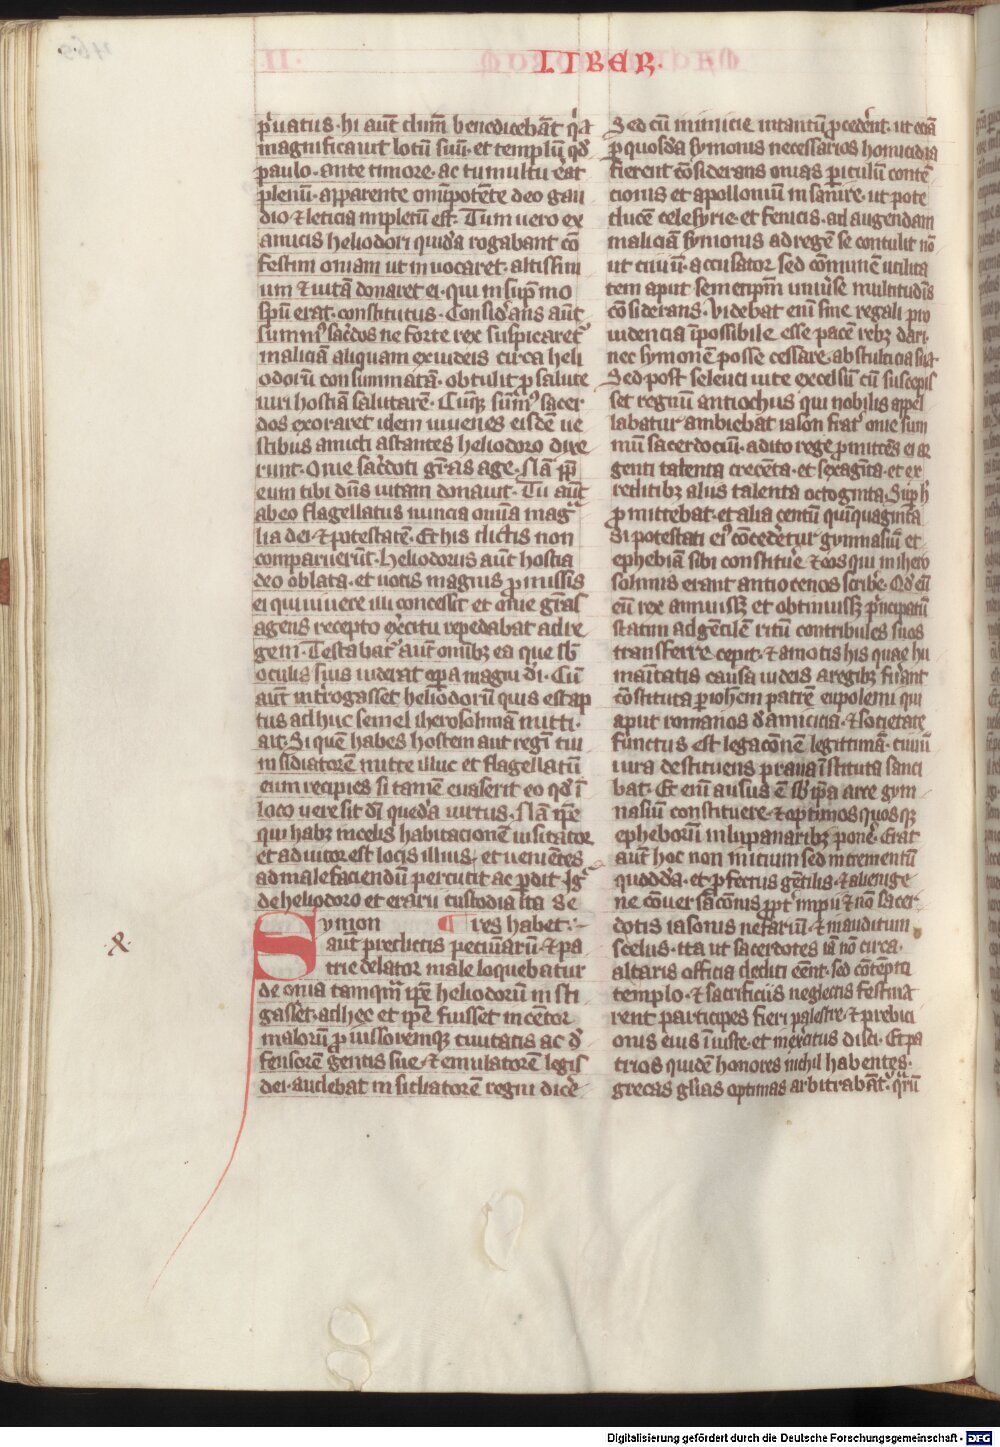 LIBER.
p̄uatus. hi aūt dūm̄ benedicebāt q̄a
magnificauit lotū suū. et templū qd̄
paulo. ante timore. ac tumultu eāt
plenū. apparente om̄ipotēte deo gau
dio ⁊ leticia inpletū est. Tum uero ex
amicis heliodori quidā rogabant cō
festim oniam ut inuocaret. altissim
um ⁊ uitā donaret ei. qui in sup̄mo
sp̄u erat. constitutus. Considerās aūt
summꝰ sac̄dos ne forte rex suspicaret᷑
maliciā aliquam ex iudeis circa heli
odorū consummatā. obtulit p salute
uiri hostiā salutarē. Cūqꝫ sūmꝰ sacer
dos exoraret idem iuuenes eisdē ue
stibus amicti astantes heliodoro dixe
runt. Onie sac̄doti gr̄as age. Nā pp̄
eum tibi dn̄s uitam donauit. Tu aūt
abeo flagellatus nuncia om̄ia mag
lia dei. ⁊ potestatē. Et his dictis non
comparuerūt. heliodorus aūt hostia
deo oblata. et uotis magnis pmissis
ei qui uiuere illi concessit et onie gr̄as
agens recepto ex̄citu repedabat ad re
gem. Testabat᷑ aūt om̄ibꝫ ea que sb̄
oculis suis uiderat opa magni di. Cū
aūt int̄rogasset heliodorū quis est ap
tus adhuc semel iherosolimā mitti.
ait. Si quē habes hostem aut regni tui
insidiatorē mitte illuc et flagellatū
eum recipies si tamē euaserit eo qd̄ ī
loco uere sit di quedā uirtus. Nā ip̄e
qui habꝫ in celis habitacionē uisitator
et adiutor est locis illius. et ueniētes
ad male faciendū percutit ac pdit. Ig᷑
de heliodoro et erarii custodia ita se
Symon ¶ res habet:-
aūt predictis pecuniarū. ⁊ pa
trie delator male loquebatur
de onia tamqm̄ ip̄e heliodorū insti
gasset. ad hec et ip̄e fuisset incētor
malorū p uissoremqꝫ ciuitatis ac d̄
fensorē gentis sue. ⁊ emulatorē legis
dei. audebat insidiatorē regni dic̄e
Sed cū inimicie intantū pcederēt. ut eciā
p quosdā symonis necessarios homicidia
fierent cōsiderans onias piculū conte
cionis et apollonium insanire. ut pote
ducē celesyrie. et fenicis. ad augendam
maliciā symonis ad regē se contulit nō
ut ciuiū. accusator sed cōmunē utilita
tem aput semetipm̄ uniūse multitudīs
cōsiderans. Videbat enī sine regali pro
uidencia īpossibile esse pacē rebꝫ dari.
nec symonē posse cessare. ab stulticia sua.
Sed post seleuci uite excelsū cū suscepis
set regnū antiochus qui nobilis appel
labatur ambiebat iason frat᷑ onie sum
mū sacerdociū. adito rege pmittēs ei ar
genti talenta trecēta. et sexagīta. et ex
redditibꝫ aliis talenta octoginta. Sup h̄
p mittebat. et alia centū quīquaginta
Si potestati eiꝰ cōcederetur gymnasiū et
ephebiā sibi constitue ⁊ eos qui in ihero
solimis erant antiocenos scribe. Qd̄ cū
eū rex annuissꝫ et obtinuissꝫ p̄ncipatū
statim ad gētilē ritū contribules suos
transferre cepit. ⁊ amotis his quae hu
manitatis causa iudeis aregibꝫ fuerāt
cōstituta p iohem patrē eupolemi qui
aput romanos d̄ amicicia. ⁊ societate
functus est legacōnē legittimā. ciuiū
iura destituens praua īstituta sanci
bat. Et enī ausus ē sb̄ ipa arce gym
nasiū constituere. ⁊ optimos quosqꝫ
epheborū in lupanaribꝫ pone. Erat
aūt hoc non initium sed incrementū
quoddā. et pfectus gētilis. ⁊ alienige
ne cōuersacōnis ppt᷑ impii ⁊ nō sacer
dotis iasonis nefariū. ⁊ inauditum
scelus. ita ut sacerdotes iā nō circa.
altaris officia dediti eēnt. sed cōtēpto
templo. ⁊ sacrificiis neglectis festina
rent participes fieri palestre. ⁊ prebici
onis eius īiuste. et in exercitus disci. Et pa
trios quidē honores nichil habentes.
grecas glias optimas arbitrabāt᷑. qr̄ū